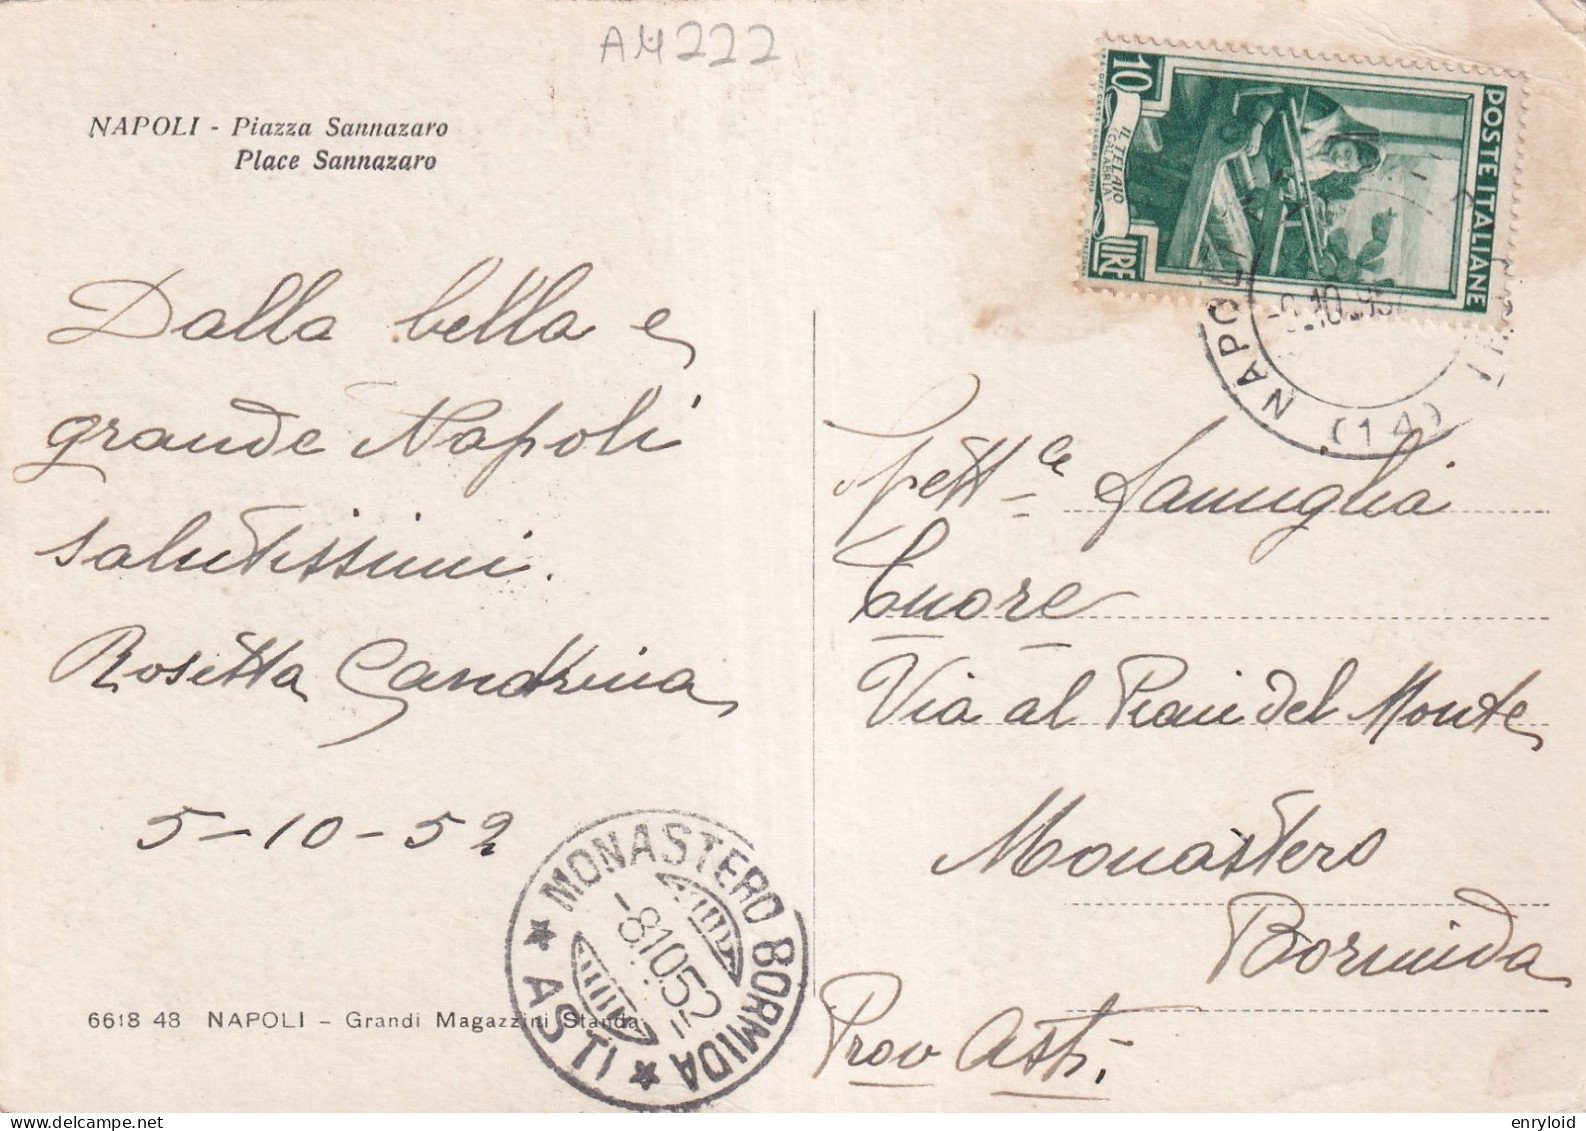 AM222
NAPOLI - Piazza Sannazaro
Place Sannazaro
POSTE ITALIANE
10
LIRE
IL TELAIO
(CALABRIA)
NAPOLI
10.1952
(14)
Dalla bella e
grande Napoli
salutissimi.
Rosetta Sandrina
5-10-52
Spett.le famiglia
Cuore
Via al Piani del Monte
Monastero
Bormida
Prov Asti,
MONASTERO BORMIDA
-8.10.52
ASTI
6618 48 NAPOLI - Grandi Magazzini Standa
www.delcampe.net
enryloid